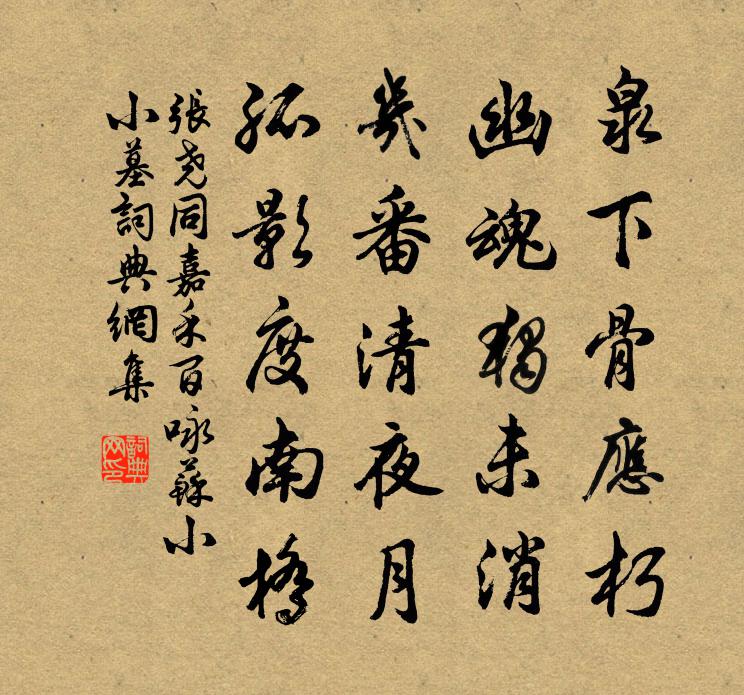 泉下骨應朽
幽魂獨未消
幾番清夜月
孤影度南橋
張堯同嘉禾百咏蘇小
小墓詞典網集
詞典网印